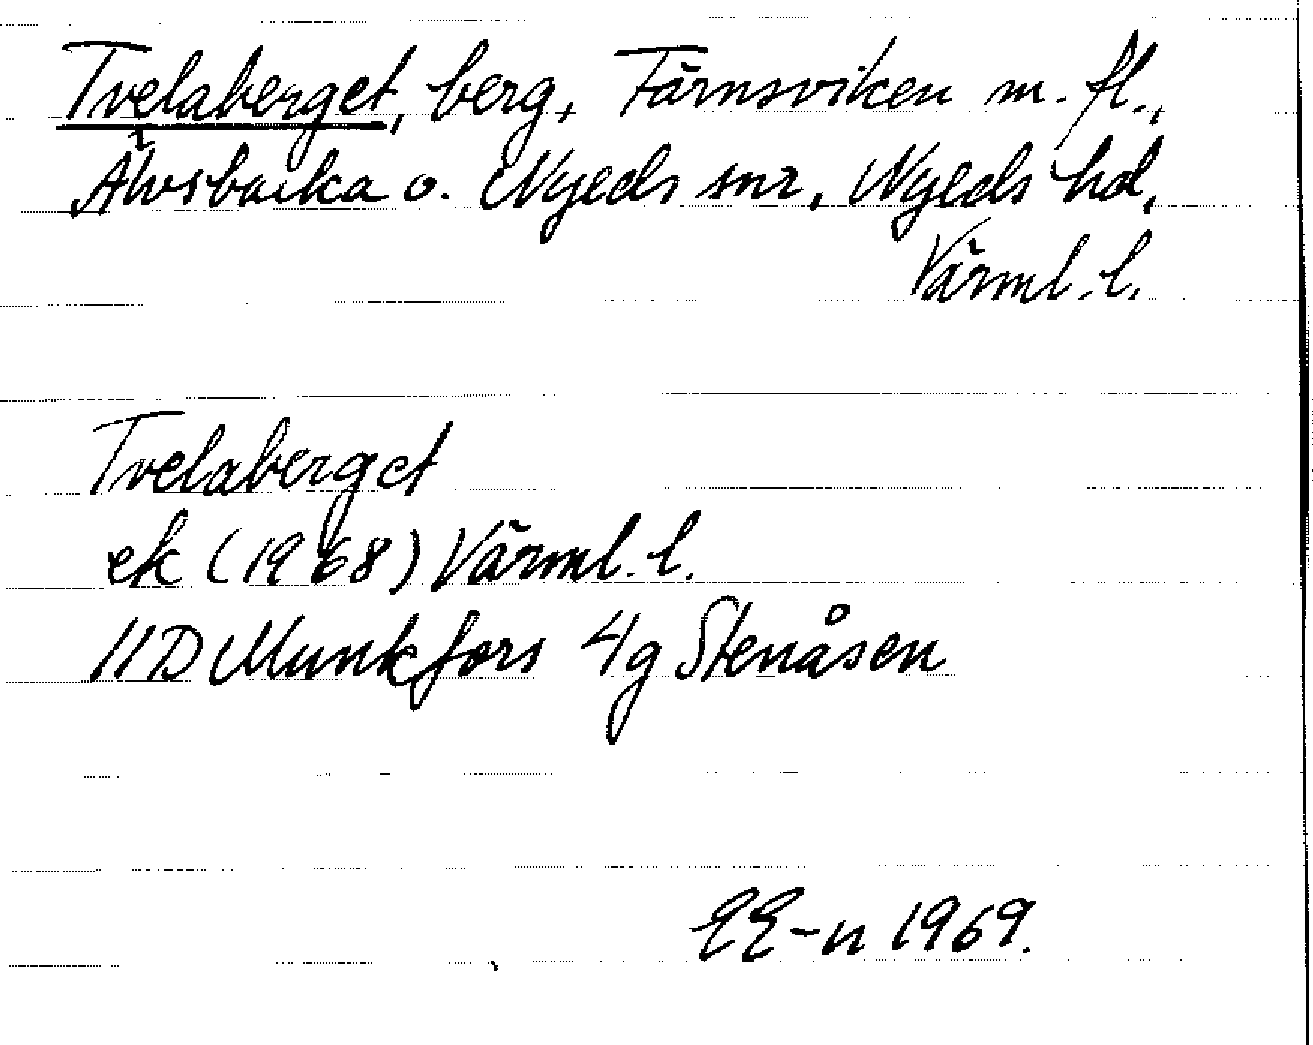 Tvelaberget, berg, Färnsviken m. fl.,
Älvsbacka o. Nyeds snr, Nyeds hd,
Värml. l.
Tvelaberget
ek (1968) Värml. l.
11D Munkfors 4g Stenåsen
EE-n 1969.